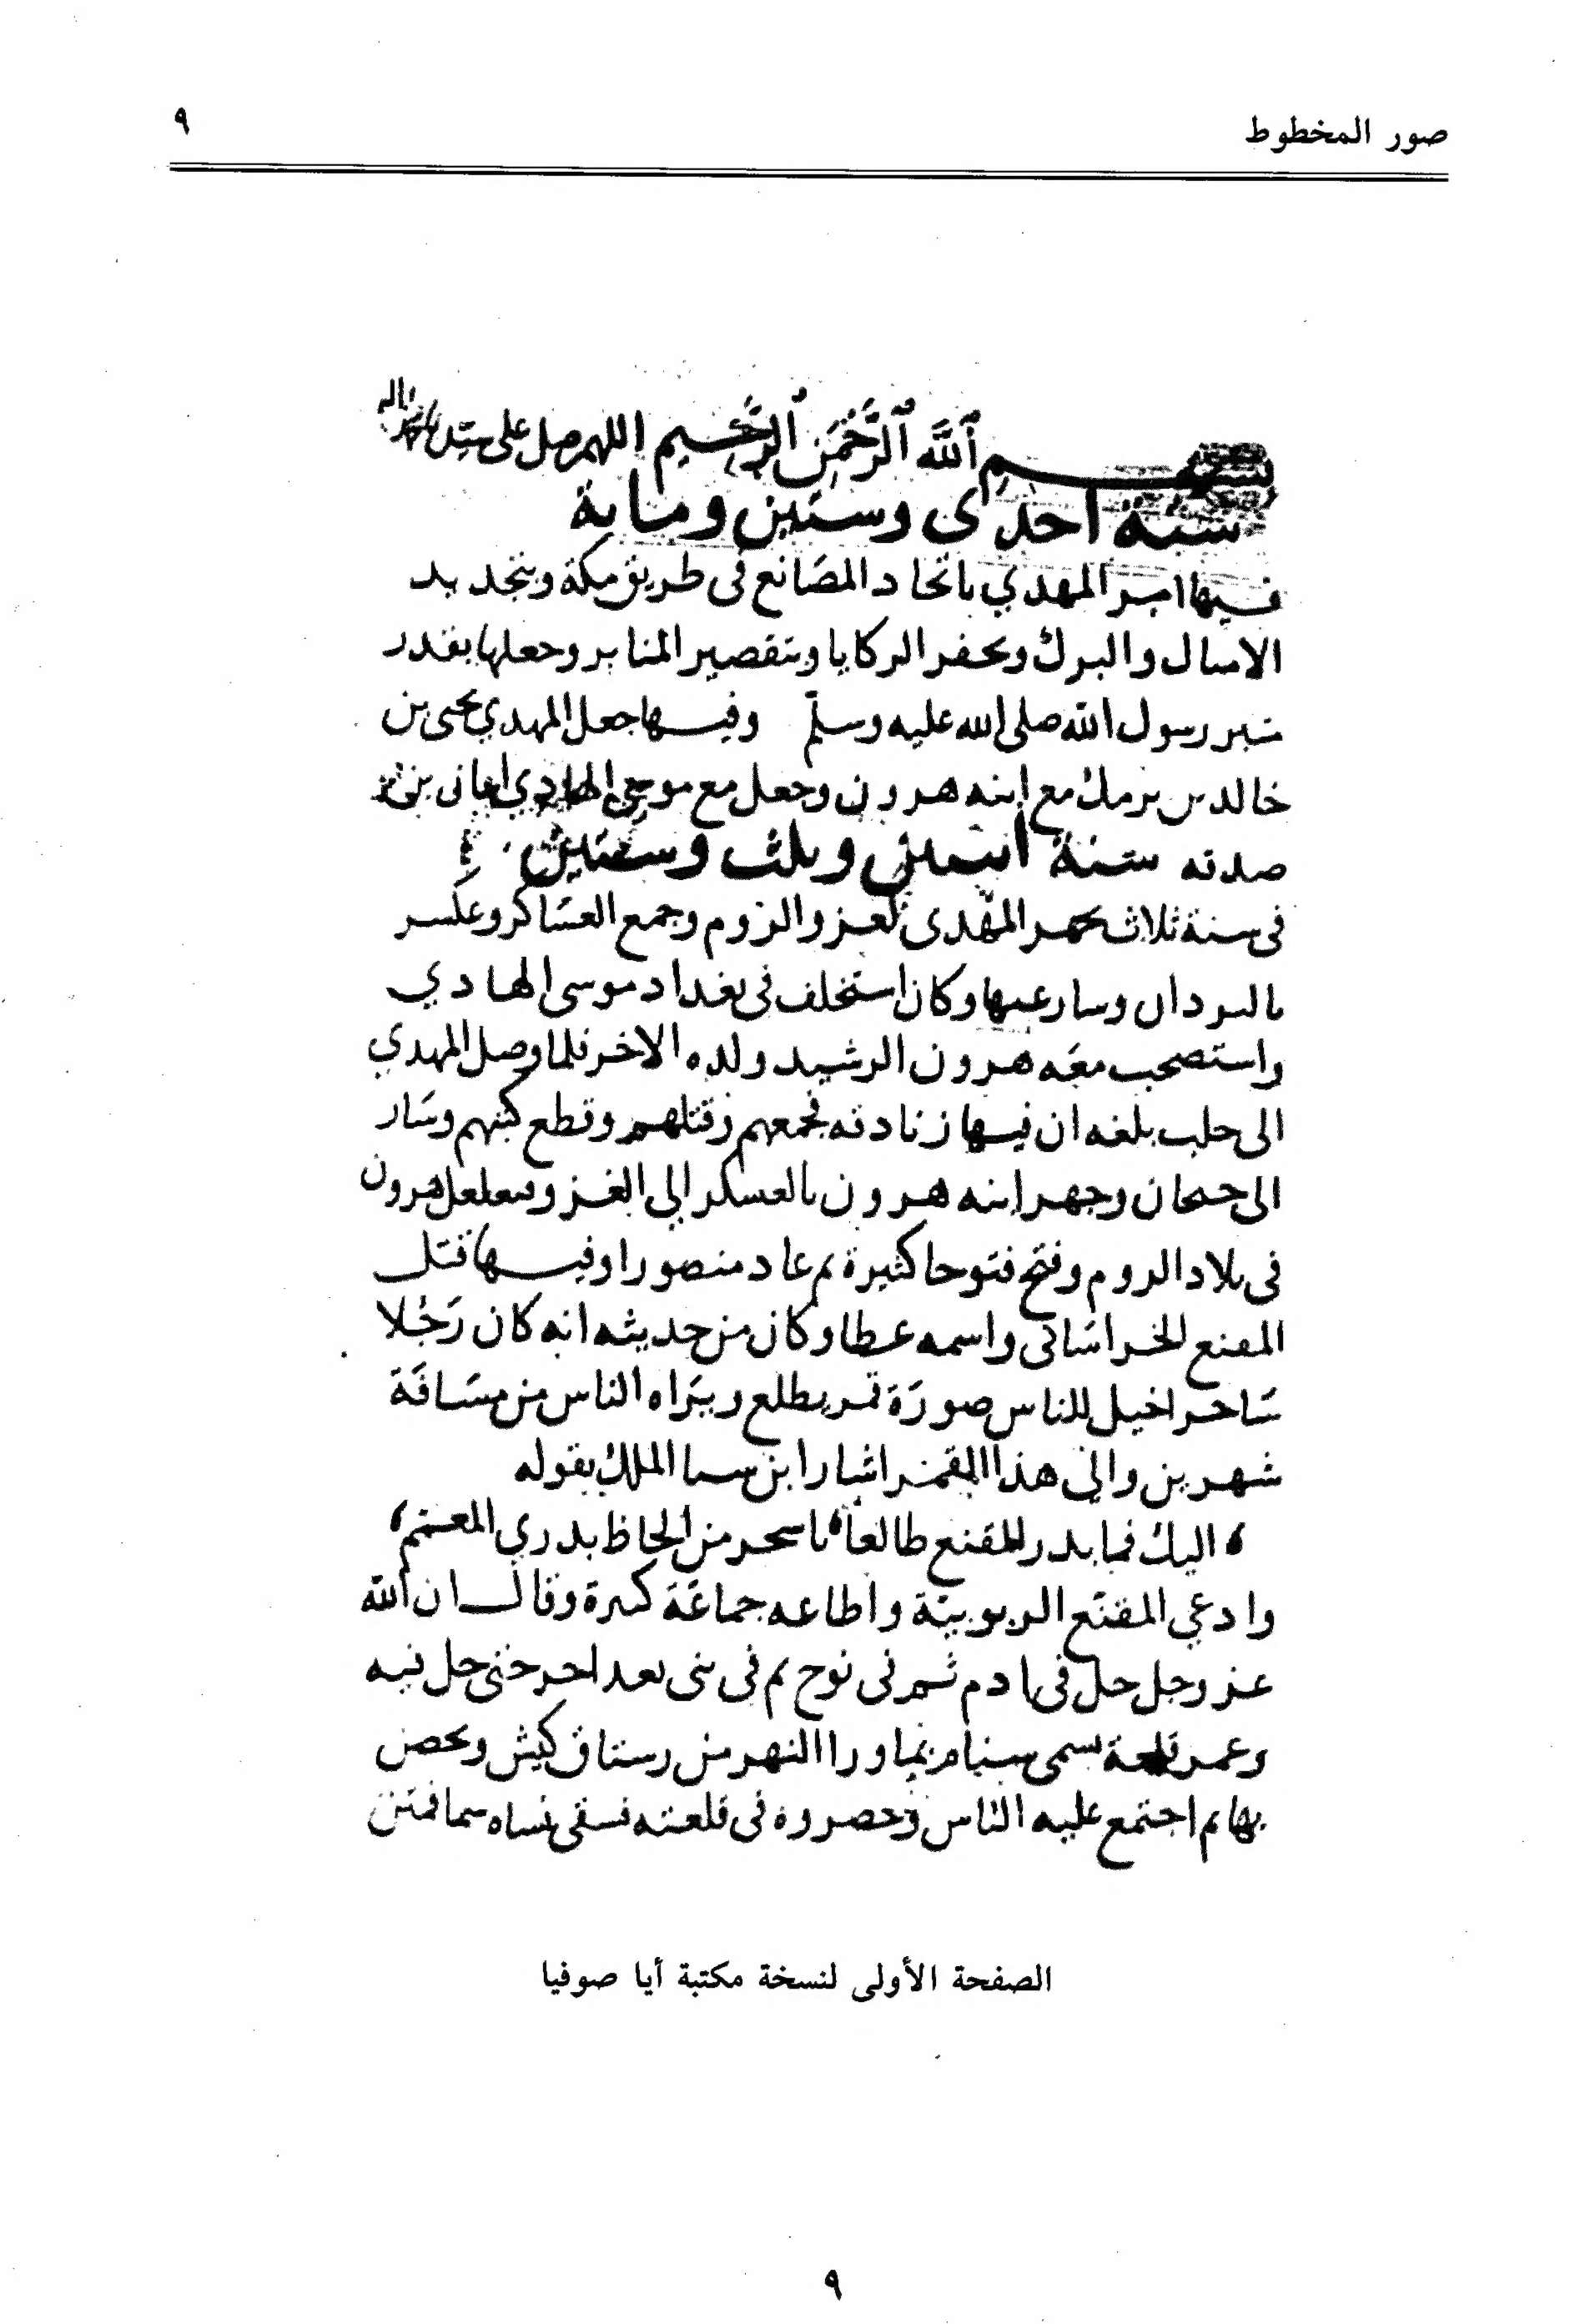 صور المخطوط
٩
بسم الله الرحمن الرحيم اللهم صل على سيدنا محمد واله
سنة احدى وستين وماية
فيها امر المهدي باتخاد المصانع فى طريق مكة وبتجديد
الاميال والبرك وبحفر الركايا وبتقصير المنابر وجعلها بقدر
منبر رسول الله صلى الله عليه وسلم وفيها جعل المهدي يحيى بن
خالد بن برمك مع ابنه هرون وجعل مع موسى الهادي ابان بن
صدقه سنة اثنين وثلث وستين
فى سنة ثلاث تجهز المهدى لغزو الروم وجمع العساكر وعسكر
بالبردان وسار عنها وكان استخلف فى بغداد موسى الهادي
واستصحب معه هرون الرشيد ولده الاخر فلما وصل المهدي
الى حلب بلغه ان فيها زنادقه فجمعهم وقتلهم وقطع كتبهم وسار
الى جيحان وجهز ابنه هرون بالعسكر الى الغزو فتغلغل هرون
فى بلاد الروم وفتح فتوحا كثيرة ثم عاد منصورا وفيها قتل
المقنع الخراسانى واسمه عطا وكان من حديثه انه كان رَجُلا
ساحرا خيل للناس صورة قمر يطلع ويراه الناس من مسافة
شهرين والى هذا القمر اشار ابن سنا الملك بقوله
اليك فما بدر المقنع طالعا باسحر من الحاظ بدري المعمم
وادعي المقنع الربوبية واطاعه جماعة كثيرة وقال ان الله
عز وجل حل فى ادم ثم فى نوح ثم فى نبى بعد اخر حتى حل فيه
وعمر قلعة تسمى سنام بما ورا النهر من رستاق كيش وتحصن
بها ثم اجتمع عليه الناس وحصروه فى قلعته فسقى نساه سما فمتن
الصفحة الأولى لنسخة مكتبة أيا صوفيا
٩